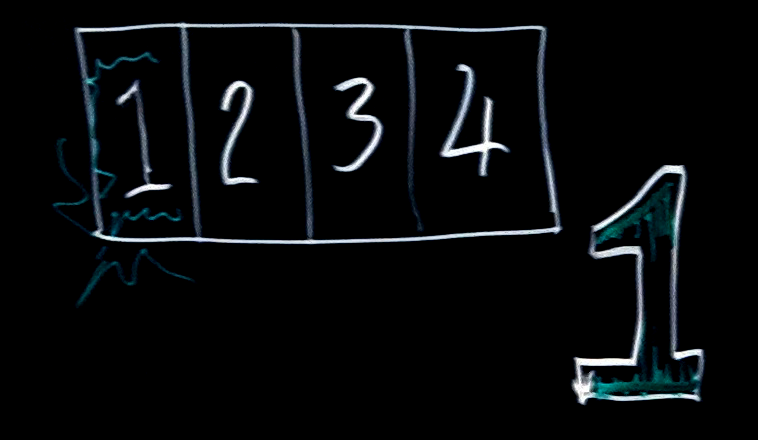 1 2 3 4
1